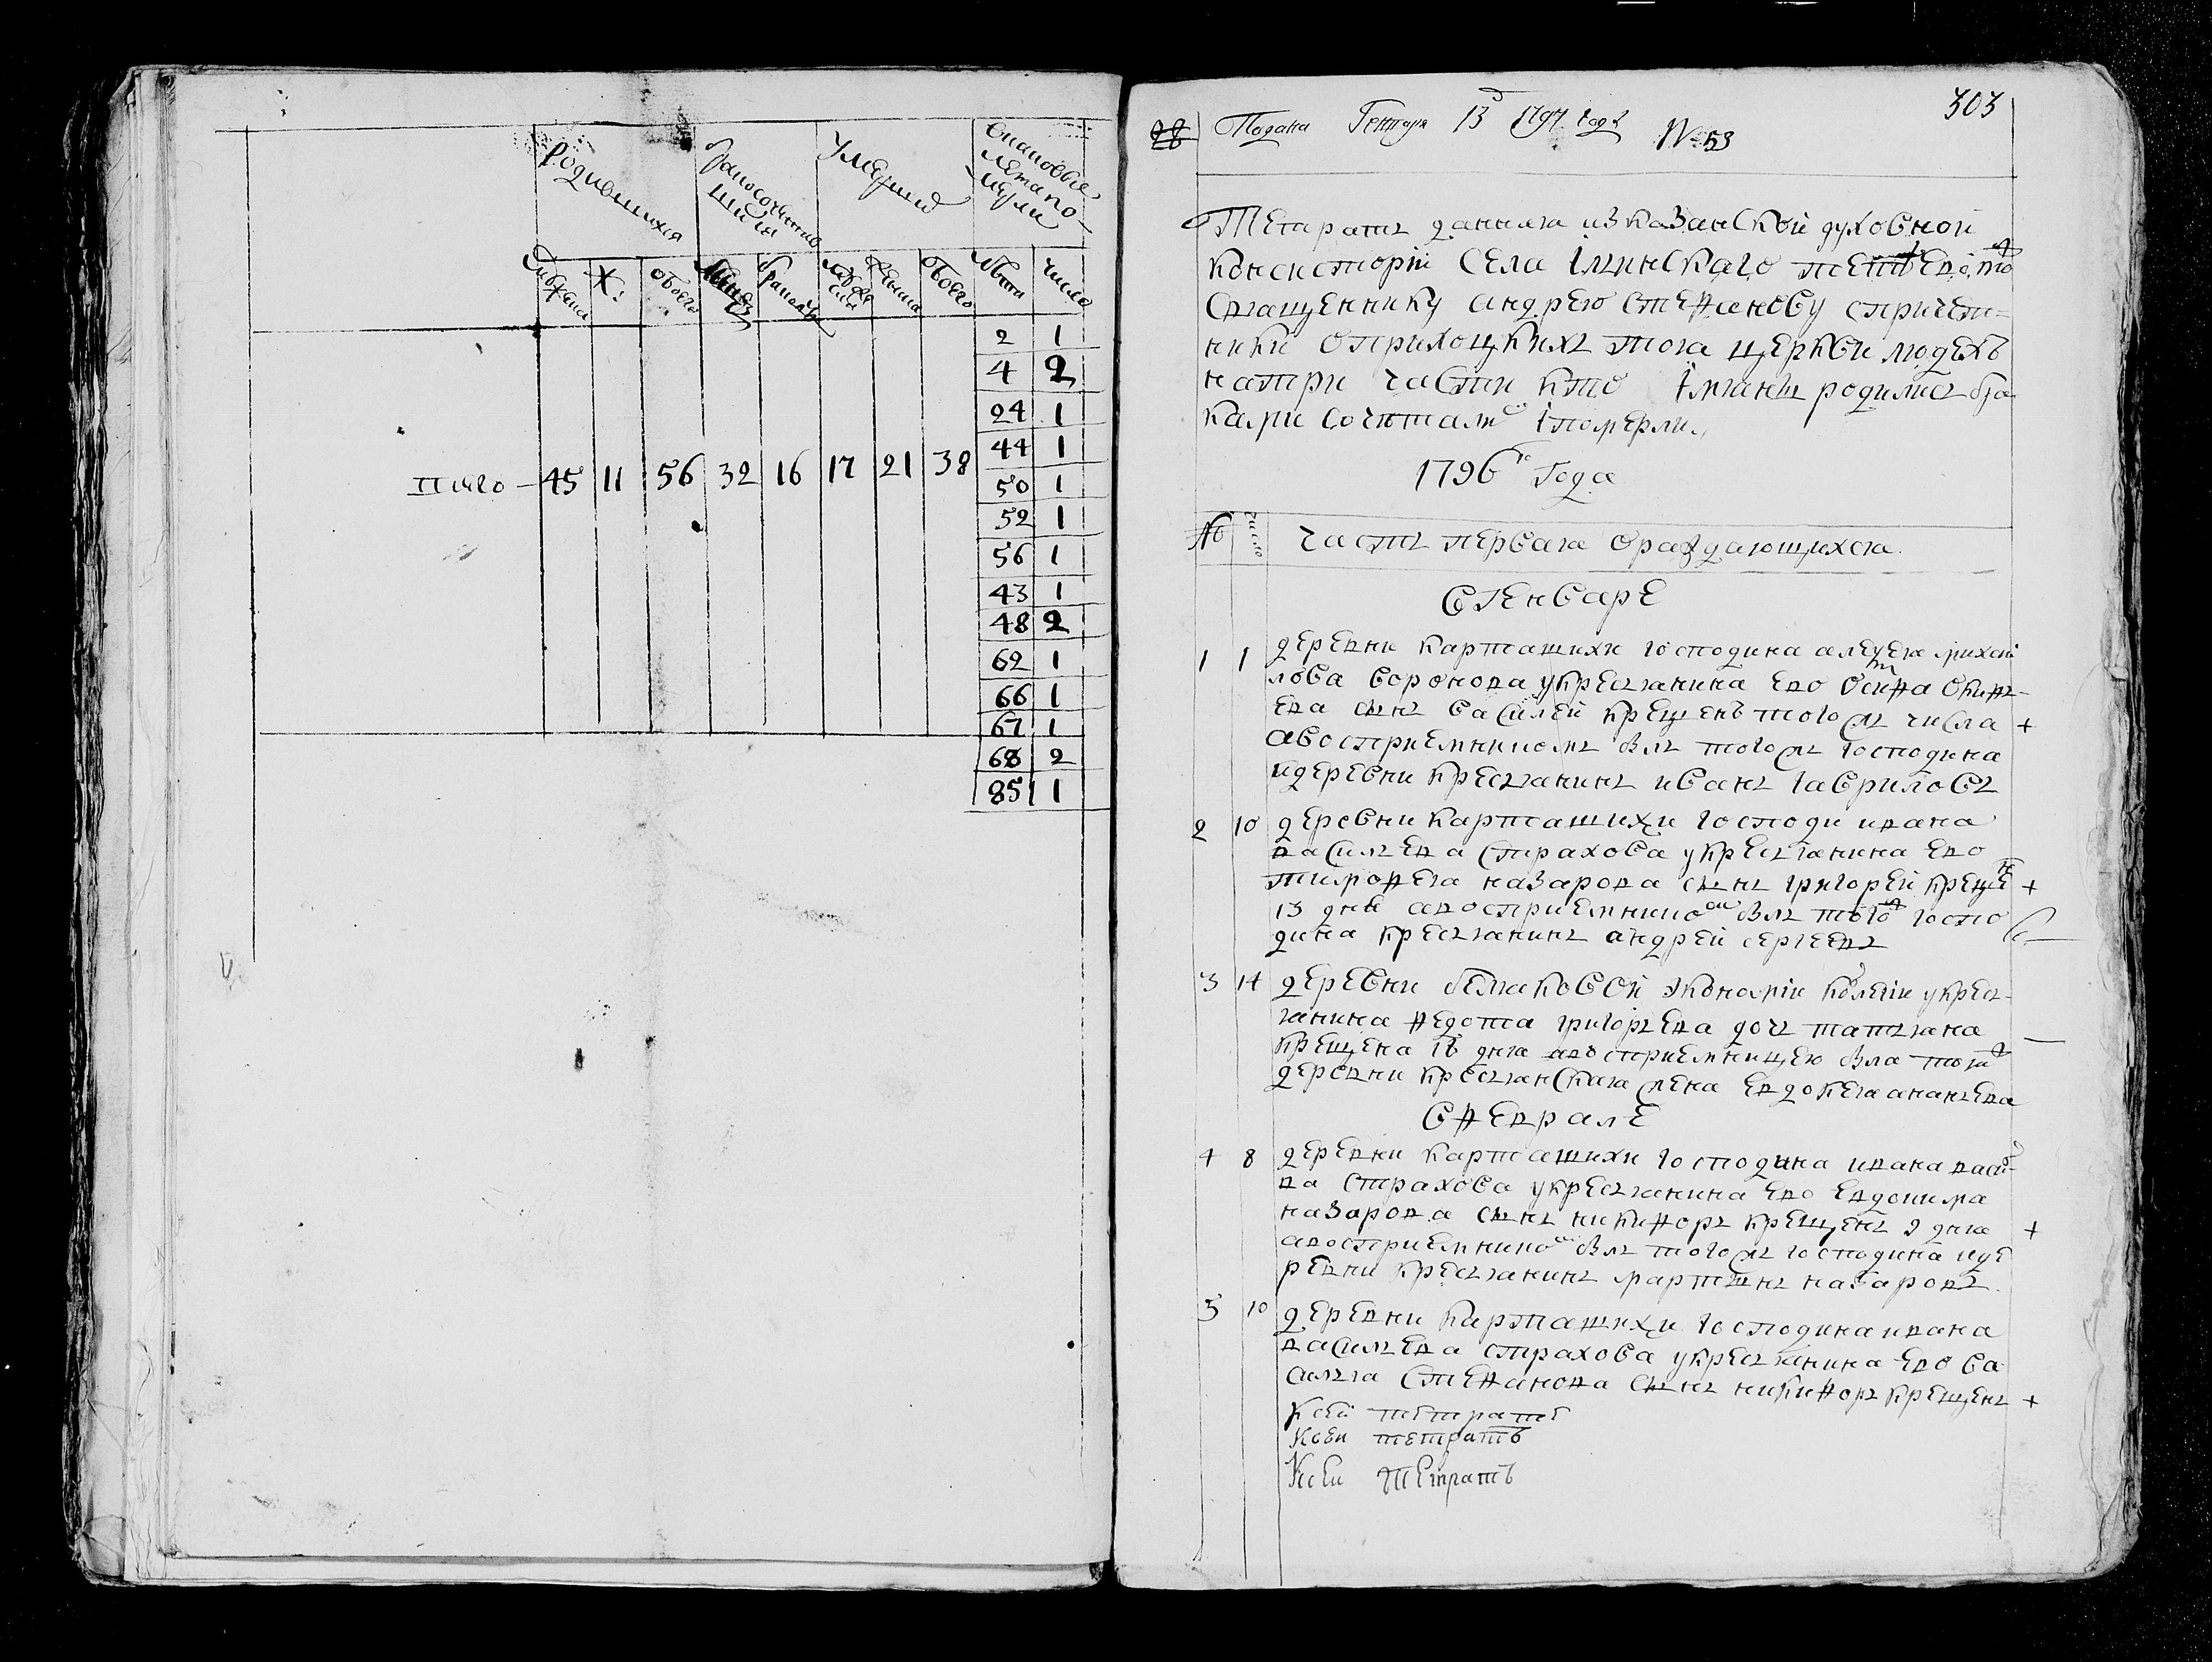 Родившихся
Умерших
обоего
числа
Итого 45 11 56 32 16 17 21 38
2 1
4 2
24 1
44 1
50 1
52 1
56 1
43 1
48 2
62 1
66 1
67 1
68 2
85 1
28 Подана Генваря 13 1797 года № 53
303
Тетрать данная из казанской духовной
консисторіи села Ілинскаго
священнику андрею стефанову спричет-
ники оприхоцкихъ тоя церкви людѣхъ
натри части кто Імяны родились бра
ками сочетались Іпомерли
1796го года
№ число часть первая ораждающихся
вгенваре
1 1 деревни карташихи господина алексея михаи
лова воронова укрестьянина ево осипа
ева сынъ василей крещенъ тогожъ числа +
авосприемникомъ былъ тогожъ господина
идеревни крестьянинъ иванъ гавриловъ
2 10 деревни карташихи господи ивана
васильева страхова укрестьянина ево
тимофея назарова сынъ григорей крещенъ +
13 дня авосприемникомъ былъ тогож госпо
дина крестьянинъ андрей сергеевъ
3 14 деревни бемаковой экономіи колегіи укресть-
янина федота григорьева дочь татьяна
крещена 16 дня авосприемницею была тояж —
деревни крестьянская жена евдокея ананьева
вфеврале
4 8 деревни карташихи господина ивана васи-
ва страхова укрестьянина ево евдокима
назарова сынъ никифоръ крещенъ 9 дня +
авосприемникомъ былъ тогожъ господина иде
ревни крестьянинъ мартынъ назаровъ
5 10 деревни карташихи господина ивана
васильева страхова укрестьянина ево ва
силья стефанова сынъ никифоръ крещенъ +
Ксей тетрате
Ксеи тетратѣ
Ксеи тетратѣ